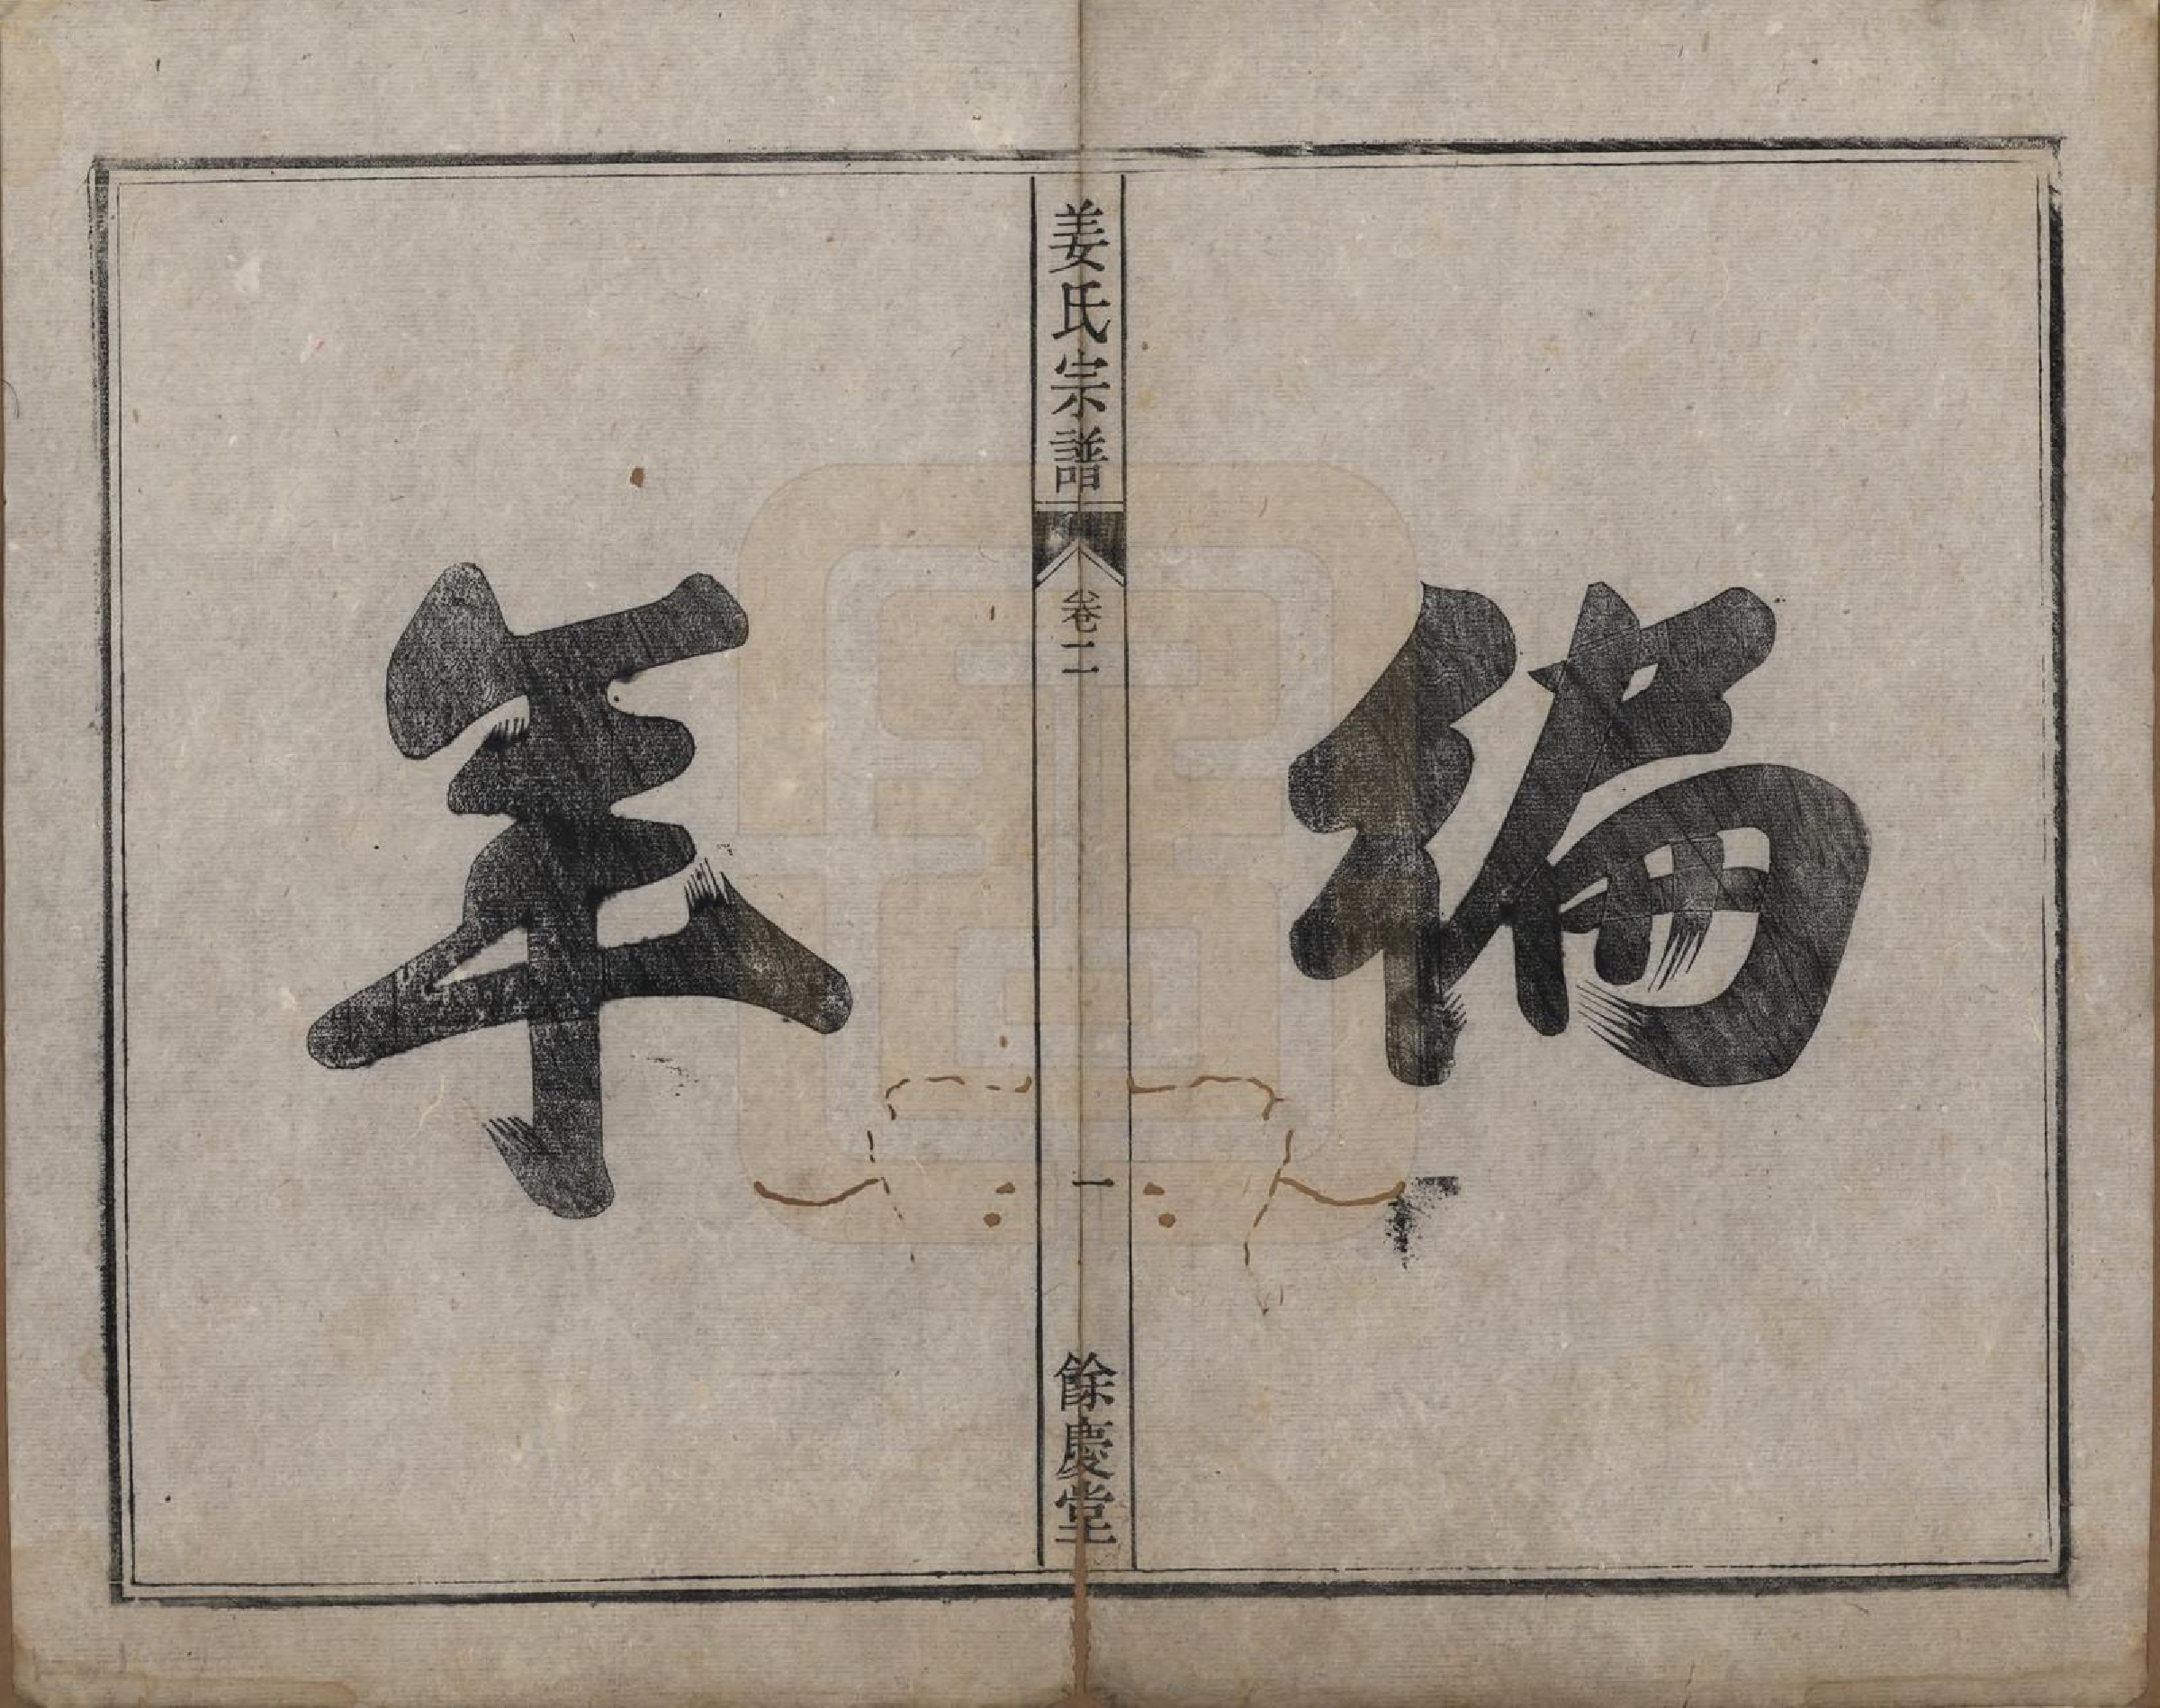 編
姜氏宗譜
卷二
一
餘慶堂
年